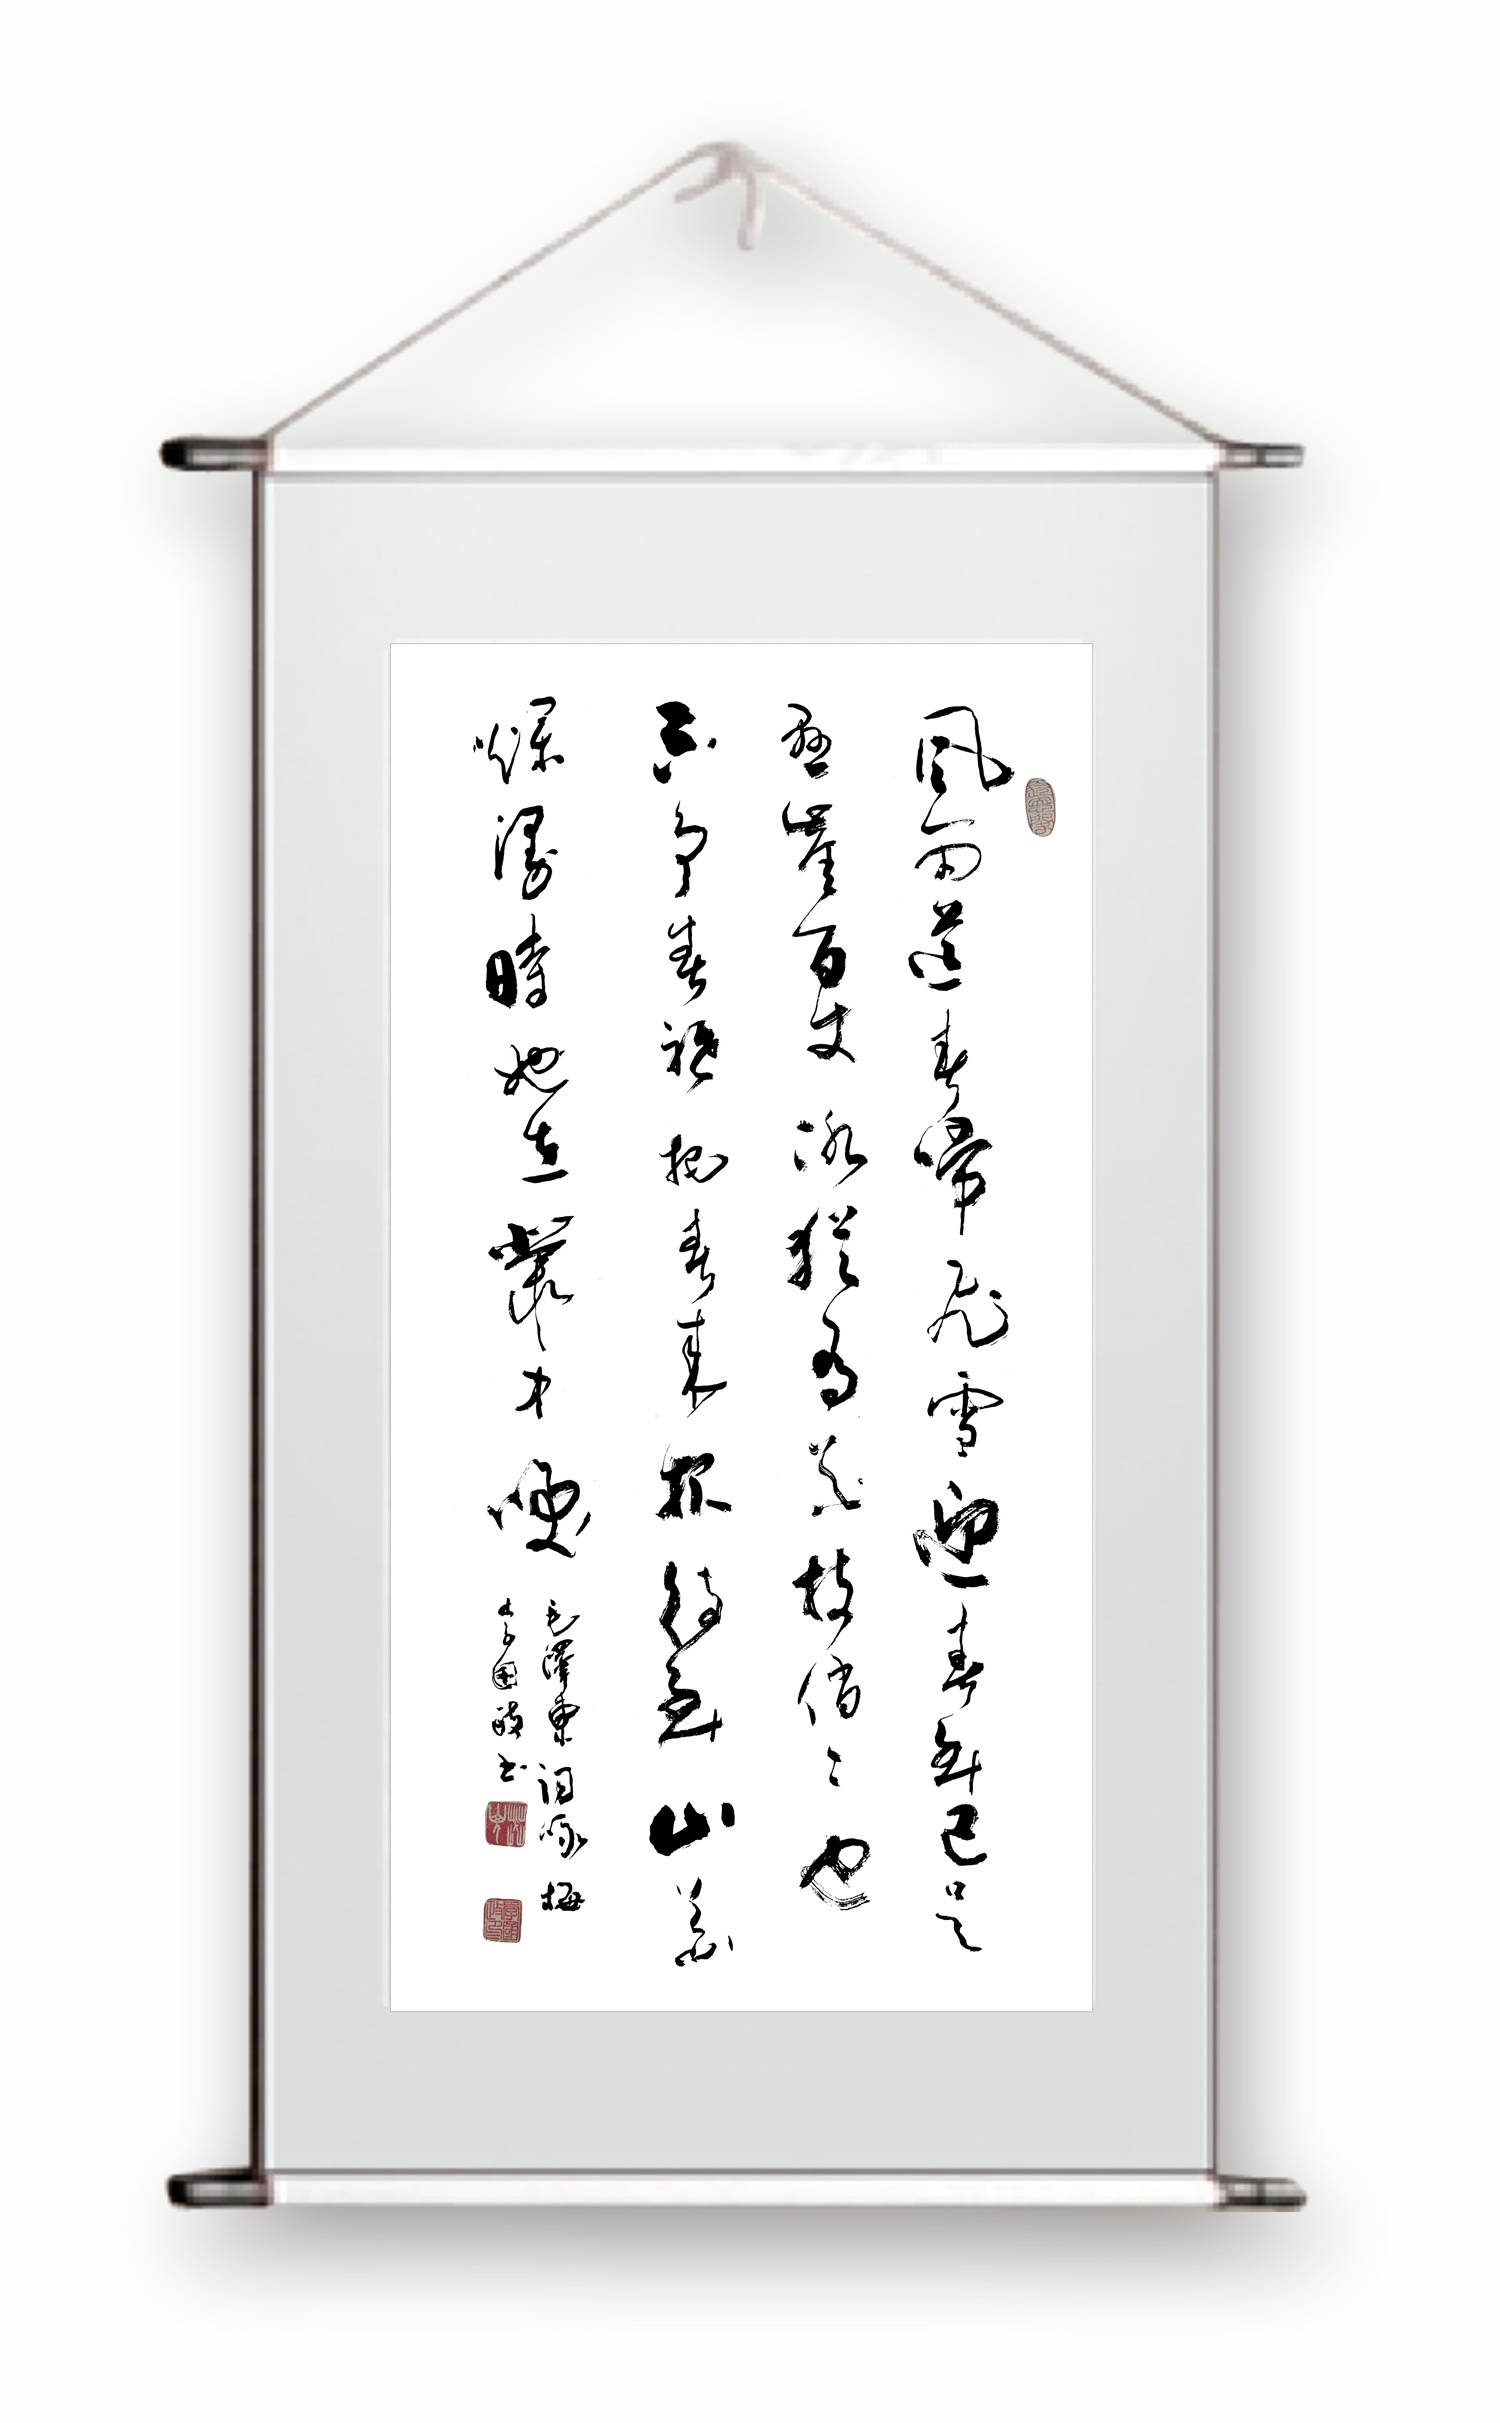 風雨送春歸飛雪迎春到已是
懸崖百丈冰猶有花枝俏々也
不争春祇把春来报待到山花
爛漫時她在叢中笑
毛澤東詞咏梅
李国政书